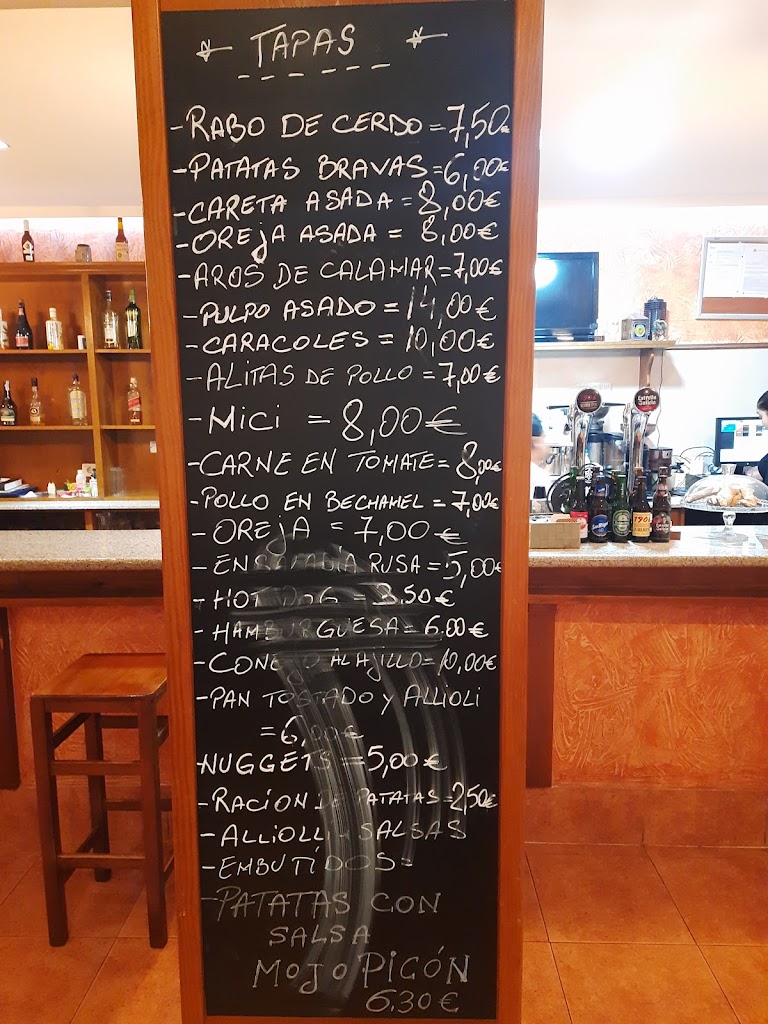 TAPAS
- RABO DE CERDO = 7,50€
- PATATAS BRAVAS = 6,00€
- CARETA ASADA = 8,00€
- OREJA ASADA = 8,00€
- AROS DE CALAMAR = 7,00€
- PULPO ASADO = 14,00€
- CARACOLES = 10,00€
- ALITAS DE POLLO = 7,00€
- Mici = 8,00€
- CARNE EN TOMATE = 8,00€
- POLLO EN BECHAMEL = 7,00€
- OREJA = 7,00€
- ENSALADIA RUSA = 5,00€
- HOT DOG = 3.50€
- HAMBURGUESA = 6.00€
- CONEJO AL AJILLO = 10,00€
- PAN TOSTADO y ALLIOLI
= 6,00€
NUGGETS = 5,00€
- RACION DE PATATAS = 2,50€
- ALLIOLLI - SALSAS
- EMBUTÍDOS =
- PATATAS CON
SALSA
MOJO PICÓN
6.30€
Estrella Galicia
1906